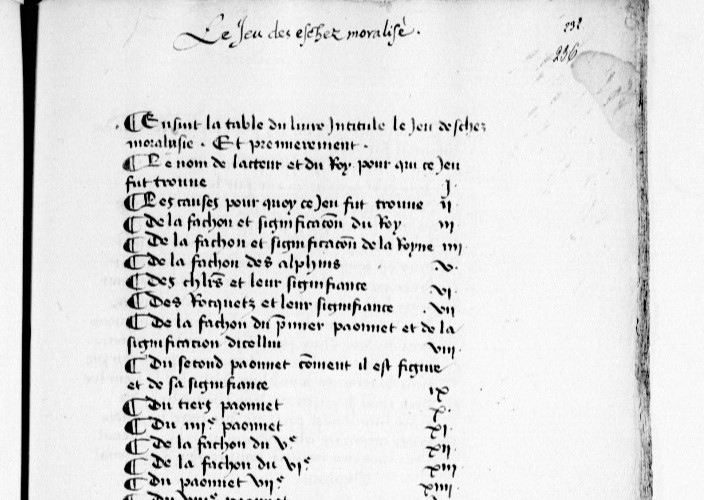 Le Jeu des eschez moralisé.
232
236
¶ Ensuit la table du livre Intitule le Jeu deschez
moralisie . Et premierement .
¶ Le nom de lacteur et du Roy pour qui ce Jeu
fut trouve I.
¶ Les causes pour quoy ce Jeu fut trouve ii
¶ De la fachon et significacōn du Roy iii
¶ De la fachon et significacōn de la Royne iiii.
¶ De la fachon des alphins .v.
¶ Des chlr̄s et leur signifiance .vi.
¶ Des Rocquetz et leur signifiance . vii
¶ De la fachon du p̄mier paonnet et de la
signification dicellui viii.
¶ Du second paonnet cōment il est figure
et de sa signifiance ix.
¶ Du tiers paonnet x.
¶ Du iiii.e paonnet xi.
¶ De la fachon du v.e xii
¶ De la fachon du vi.e xiii
¶ Du paonnet vii.e xiiii.